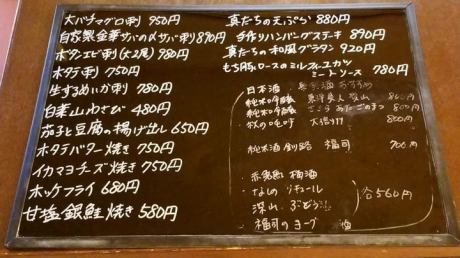 大バチマグロ刺 950円
自家製金華サバの〆サバ刺 890円
ボタンエビ刺(大2尾) 980円
ホタテ刺 750円
生するめいか刺 780円
白葉山わさび 480円
茄子と豆腐の揚げ出し 650円
ホタテバター焼き 750円
イカマヨチーズ焼き 750円
ホッケフライ 680円
甘塩銀鮭焼き 580円
真だちの天ぷら 880円
手作りハンバーグステーキ 890円
真だちの和風グラタン 920円
もち豚ロースのミルフィーユカツ
ミートソース 780円
日本酒 おすすめ
純米吟醸 800円
純米吟醸 800円
秋の 800円
純米酒 釧路 福司 700円
梅酒
なしのリキュール
深山ぶどう
福司のヨーグ 酒
各560円